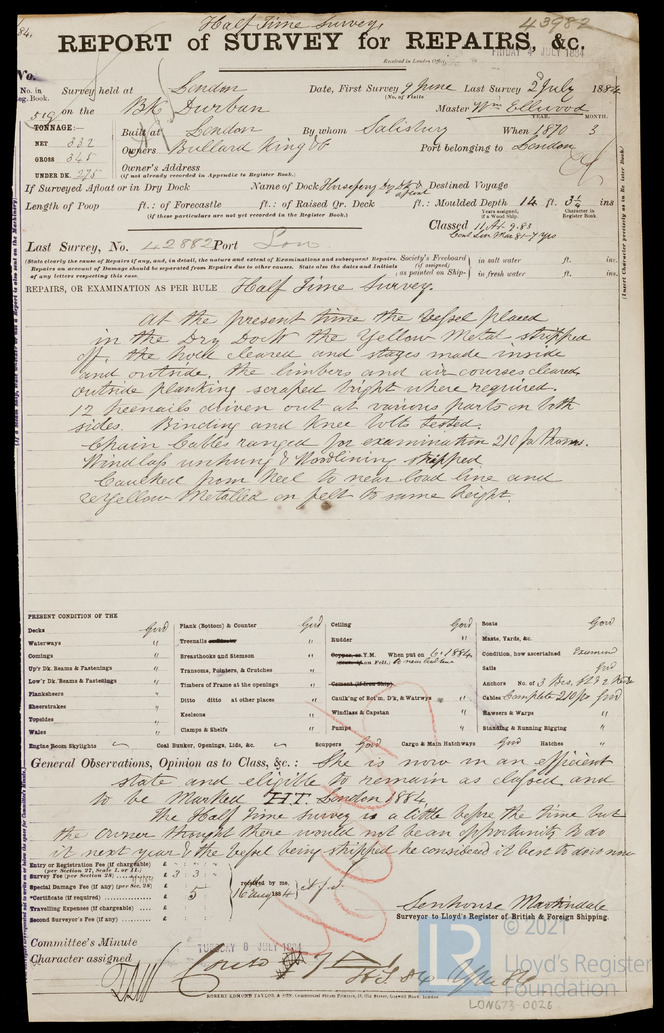 Half Time Survey.
43982
REPORT of SURVEY for REPAIRS, &c.
FRIDAY 4 JULY 1884
Received in London Office,
No.
No. in Reg. Book. Survey held at London Date, First Survey 9 June Last Survey 2 July 1884
(No. of Visits
519 on the Bk Durban Master Wm Ellwood
YEAR. MONTH.
TONNAGE:— Built at London By whom Salisbury When 1870 3
NET 332
GROSS 345 Owners Bullard King & Co Port belonging to London
UNDER DK. 275 Owner's Address
(if not already recorded in Appendix to Register Book.)
If Surveyed Afloat or in Dry Dock Name of Dock Destined Voyage
Length of Poop ft.: of Forecastle ft.: of Raised Qr. Deck ft.: Moulded Depth 14 ft. 3 1/4 ins
(if these particulars are not yet recorded in the Register Book.)
Years assigned, if a Wood Ship. Character in Register Book.
Classed 11 A1 9.83
Last Survey, No. 42882 Port Lon
(State clearly the cause of Repairs if any, and, in detail, the nature and extent of Examinations and subsequent Repairs. Repairs on account of Damage should be separated from Repairs due to other causes. State also the dates and initials of any letters respecting this case.
Society's Freeboard (if assigned) as painted on Ship— in salt water ft. ins.
in fresh water ft. ins.
REPAIRS, OR EXAMINATION AS PER RULE Half Time Survey.
At the present time the Vessel placed
in the Dry Dock the Yellow Metal stripped
off. the hold cleared and stages made inside
and outside, the limbers and air courses cleared,
outside planking scraped bright where required.
12 treenails driven out at various parts on both
sides. Binding and Knee bolts tested.
Chain Cables ranged for examination 210 fathoms.
Windlass unhung & Woodlining stripped
Caulked from Keel to near load line and
reYellow Metalled on felt to same height.
PRESENT CONDITION OF THE
Decks Good
Waterways "
Comings "
Up'r Dk. Beams & Fastenings "
Low'r Dk. Beams & Fastenings "
Planksheers "
Sheerstrakes "
Topsides "
Wales "
Plank (Bottom) & Counter Good
Treenails "
Breasthooks and Stemson "
Transoms, Pointers, & Crutches "
Timbers of Frame at the openings "
Ditto ditto at other places "
Keelsons "
Clamps & Shelfs "
Ceiling Good
Rudder "
Copper, or Y.M. When put on 6/1884
Cement (if Iron Ship)
Caulk'ng of Bot'm, D'k, & Watrwys "
Windlass & Capstan "
Pumps "
Boats Good
Masts, Yards, &c. "
Condition, how ascertained Examined
Sails Good
Anchors No. of
Cables Complete 210 fm Good
Hawsers & Warps "
Standing & Running Rigging "
Engine Room Skylights Coal Bunker, Openings, Lids, &c. Scuppers Good Cargo & Main Hatchways Good Hatches "
General Observations, Opinion as to Class, &c.: She is now in an efficient
state and eligible to remain as classed and
to be Marked H.T. London 1884
The Half Time Survey is a little before the time but
the Owner thought there would not be an opportunity to do
it next year & the Vessel being stripped he considered it best to do is now
Entry or Registration Fee (if chargeable) £
(per Section 27, Scale 1, or 11.)
Survey Fee (per Section 28) £ 3 3
Special Damage Fee (if any) (per Sec. 28) £
*Certificate (if required) £ 5
Travelling Expenses (if chargeable) £
Second Surveyor's Fee (if any) £
received by me,
16 Aug 1884
Senhouse Martindale
Surveyor to Lloyd's Register of British & Foreign Shipping.
Committee's Minute TUESDAY 8 JULY 1884
Character assigned
ROBERT EDMUND TAYLOR & SON, Commercial Steam Printers, 19, Old Street, Goswell Road, London
© 2021
Lloyd's Register
Foundation
LON673-0026